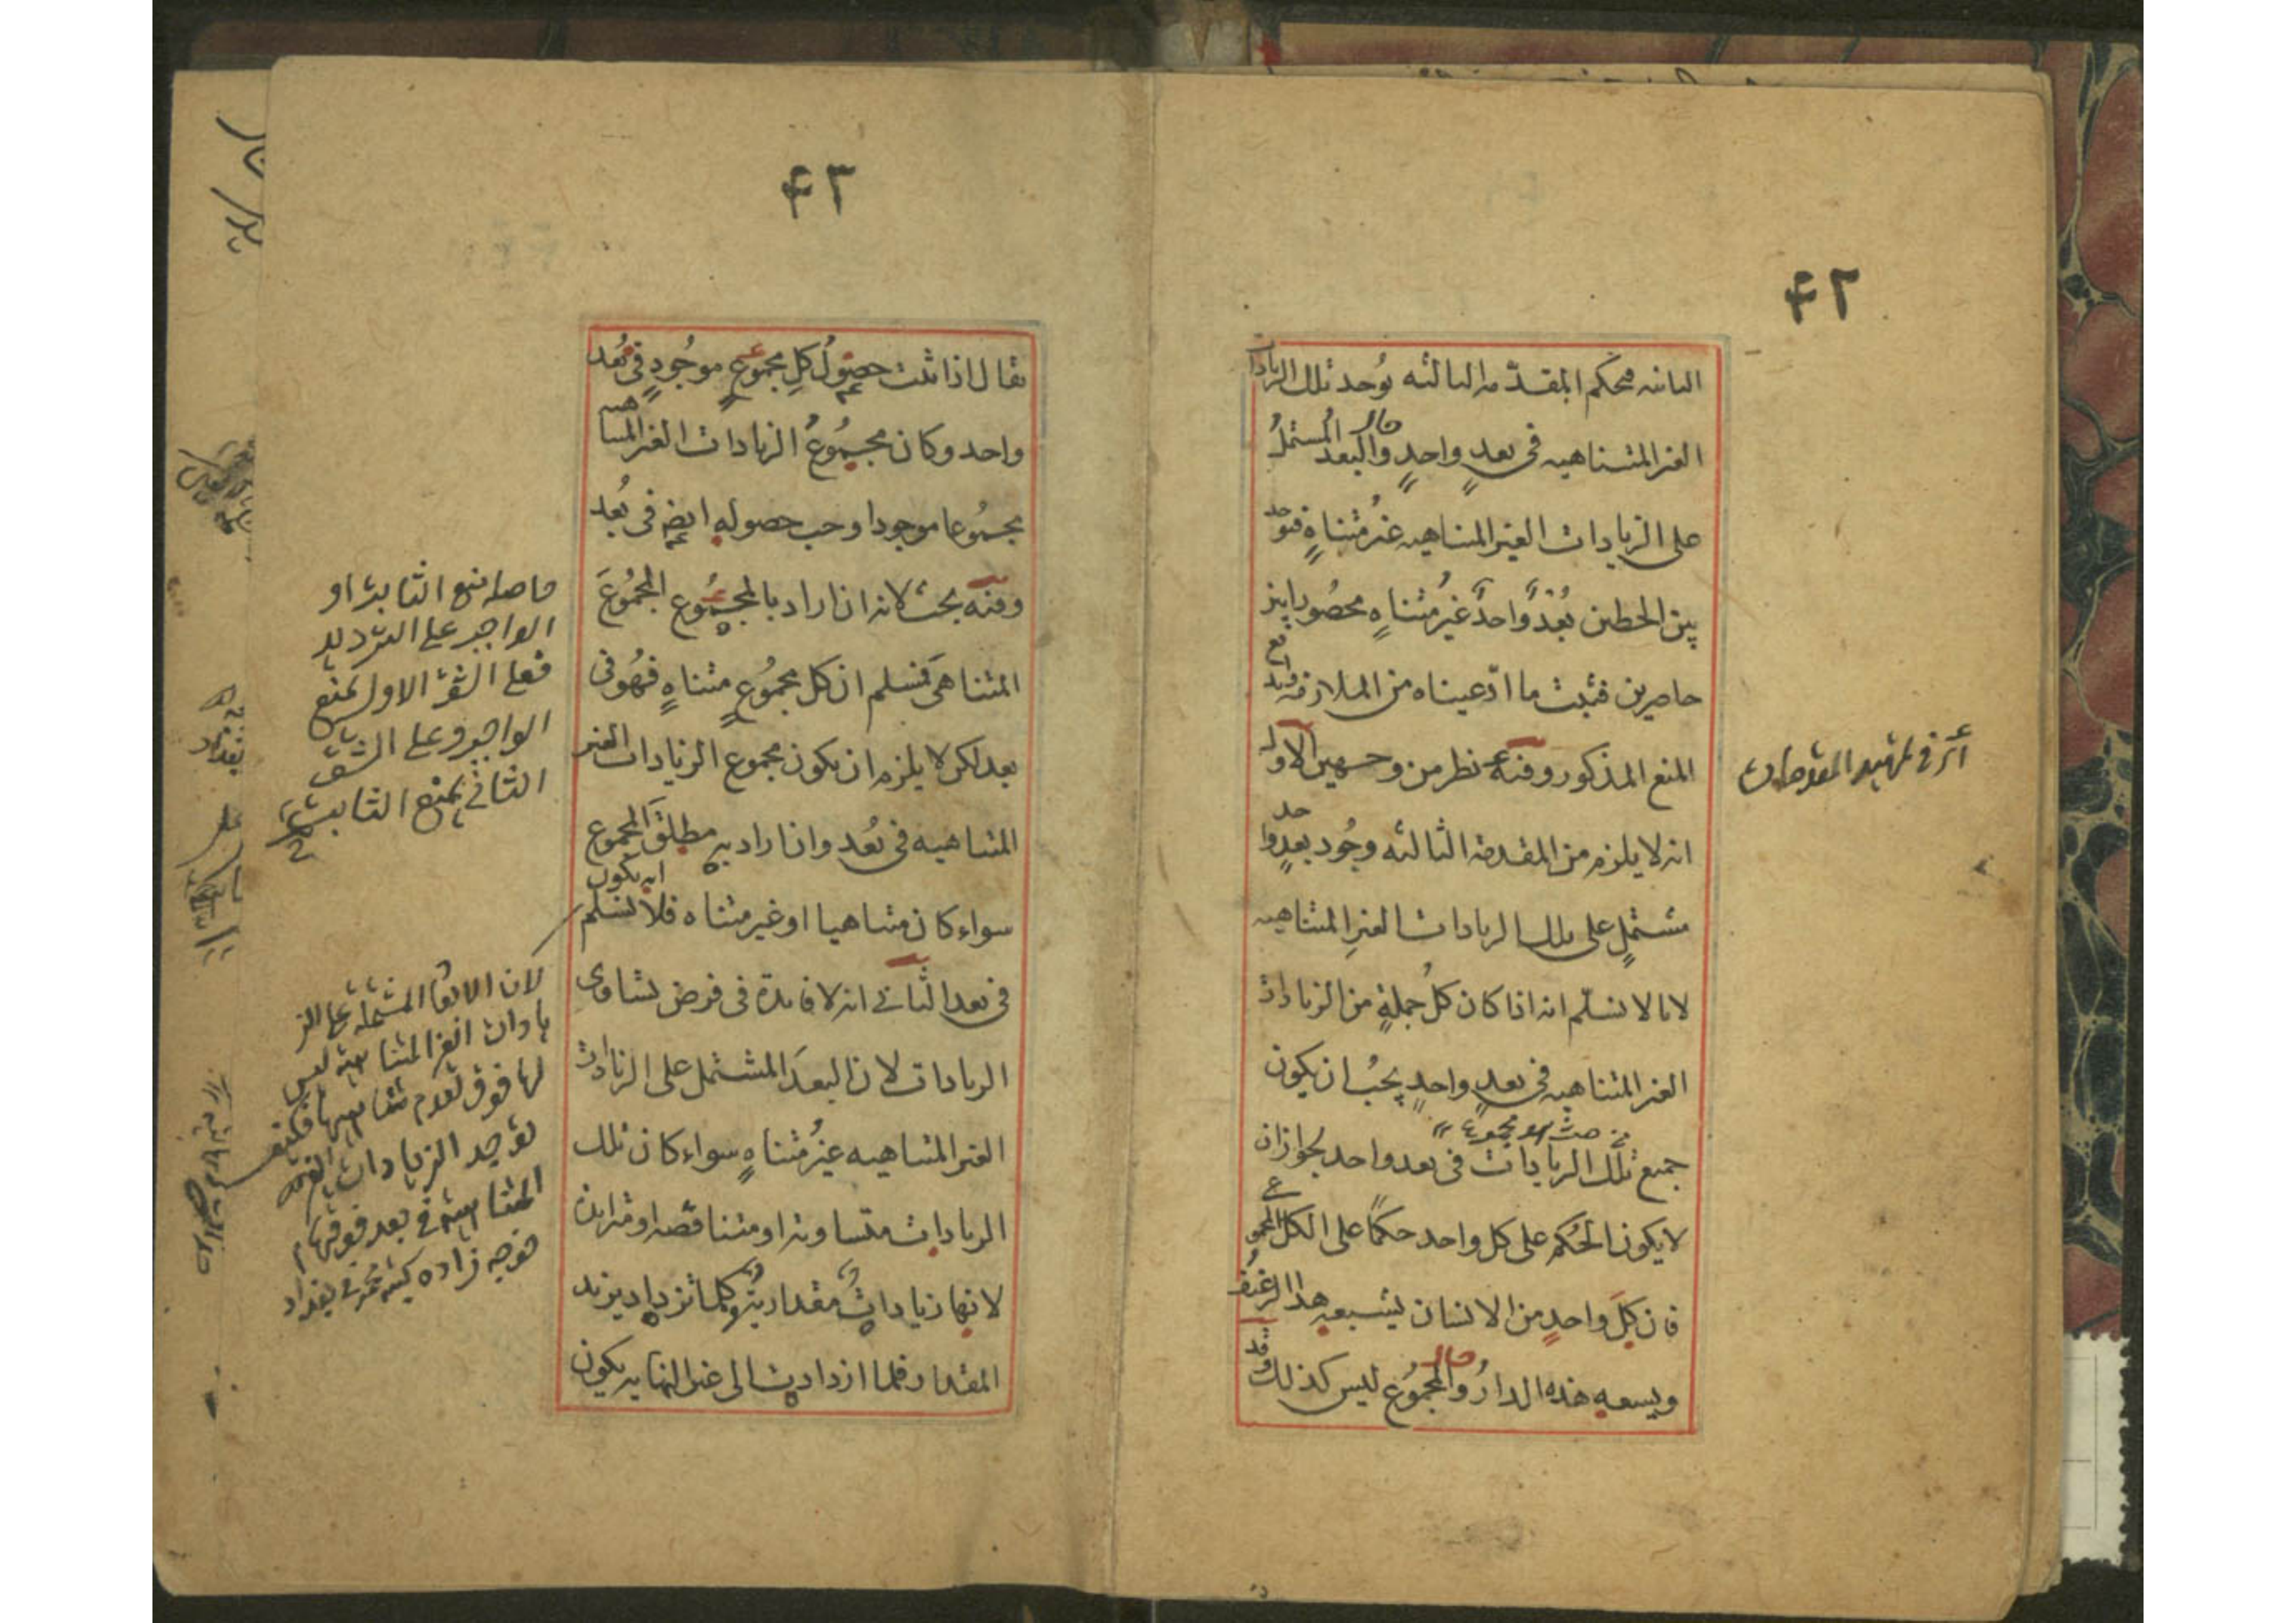 ۴۲
الثانيه فبحكم المقدّمه الثالثه يوُجد تلك الزيادات
الغير المتناهيه فى بعدٍ واحدٍ والبعد المُشتملُ
على الزيادات الغير المتناهيه غيرُ متناهٍ فيوجد
بين الخطين بُعدٌ واحدٌ غيرُ متناهٍ محصُور بين
حاصرين فثبت ما ادّعيناه من الملازمه واندفع
المنع المذكور وفيه نظر من وجهين الاول
انه لا يلزم من المقدمه الثالثه وجُود بعدٍ واحد
مشتملٍ على تلك الزيادات الغيرِ المتناهيه
لانا لا نسلّم انه اذا كان كلُ جملةٍ من الزيادات
الغير المتناهيه فى بعدٍ واحدٍ يجبُ ان يكون
من حيث هو مجموع
جميع تلك الزيادات فى بعد واحد لجواز ان
لا يكون الحُكم على كل واحد حكمًا على الكل المجموعى
فان كلَ واحدٍ من الانسان يشبعه هذا الرغيفُ
ويسعه هذه الدارُ والمجمُوع ليس كذلك وقد
اى فى تمهيد المقدمات
۴۳
يقال اذا ثبت حصوُلُ كلِ مجموعٍ موجُودٍ فى بُعد
واحد وكان مجموُعُ الزيادات الغير المتناهيه
مجموُعا موجودا وجب حصوله ايضا فى بُعد
وفيه بحث لانه ان اراد بالمجموُع المجمُوعَ
المتناهىَ فنسلم ان كل مجمُوعٍ متناهٍ فهُو فى
بعد لكن لا يلزم ان يكون مجموع الزيادات الغير
المتناهيه فى بُعد وان اراد به مطلقَ المجموع
سواء كان متناهيا او غير متناه فلا نسلم انه يكون
فى بعد الثانى انه لا فايدة فى فرض تساوى
الزيادات لان البعدَ المشتمل على الزيادات
الغير المتناهيه غيرُ متناهٍ سواء كان تلك
الزيادات متساويه او متناقصه او متزايده
لانها زياداتٌ مقداريةٌ وكلما تزداد يزيد
المقدار فلما ازدادت الى غير النهايه يكون
حاصله منع الثابت او
الواجب على الترديد
فعلى الشق الاول يمنع
الواجب وعلى الشق
الثانى يمنع الثابت
لان الابعاد المشتمله على الز
يادات الغير المتناهيه ليس
لها فوق لعدم تناهيها فيمتنع
توجيد الزيادات الغير
المتناهيه فى بعد فوقها